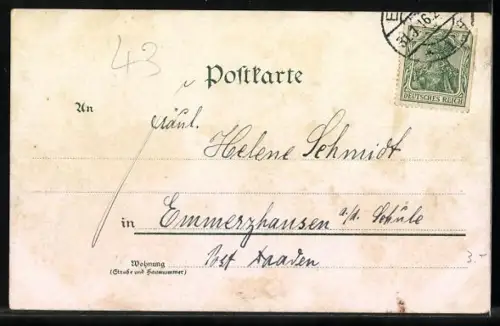 43
Postkarte
DEUTSCHES REICH
An
Fräul.
Helene Schmidt
in Emmerzhausen a/d. Schule
Wohnung
(Straße und Hausnummer)
Post Daaden
3.-